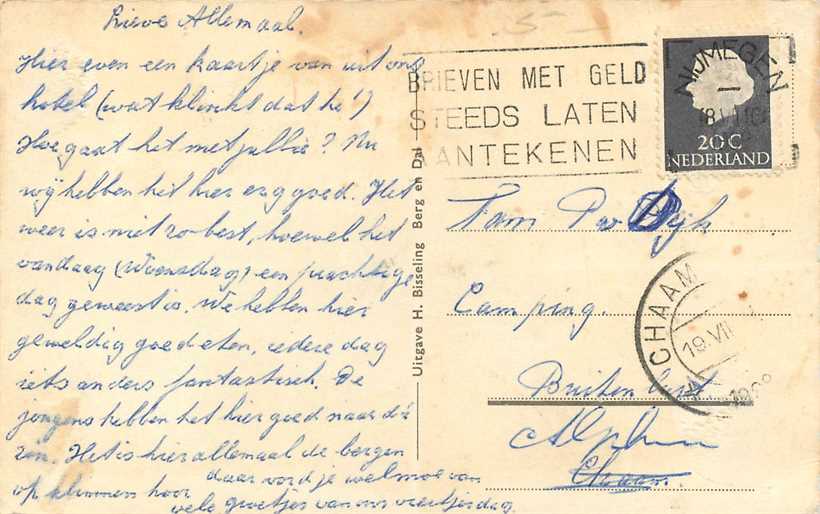 Lieve Allemaal.
Hier even een kaartje van uit ons
hotel (wat klinkt dat he!)
Hoe gaat het met jullie? Nu
wij hebben het hier erg goed. Het
weer is niet zo best, hoewel het
vandaag (Woensdag) een prachtige
dag geweest is. We hebben hier
geweldig goed eten, iedere dag
iets anders fantastisch. De
jongens hebben het hier goed naar d'r
zin. Het is hier allemaal de bergen
op klimmen hoor daar word je wel moe van
vele groetjes van ons
BRIEVEN MET GELD
STEEDS LATEN
AANTEKENEN
NIJMEGEN
18.VII.
20C
NEDERLAND
Uitgave H. Bisseling Berg en Dal
Fam P v Dijk
Camping.
Buitenlust
Alphen
Chaam.
CHAAM
19.VII